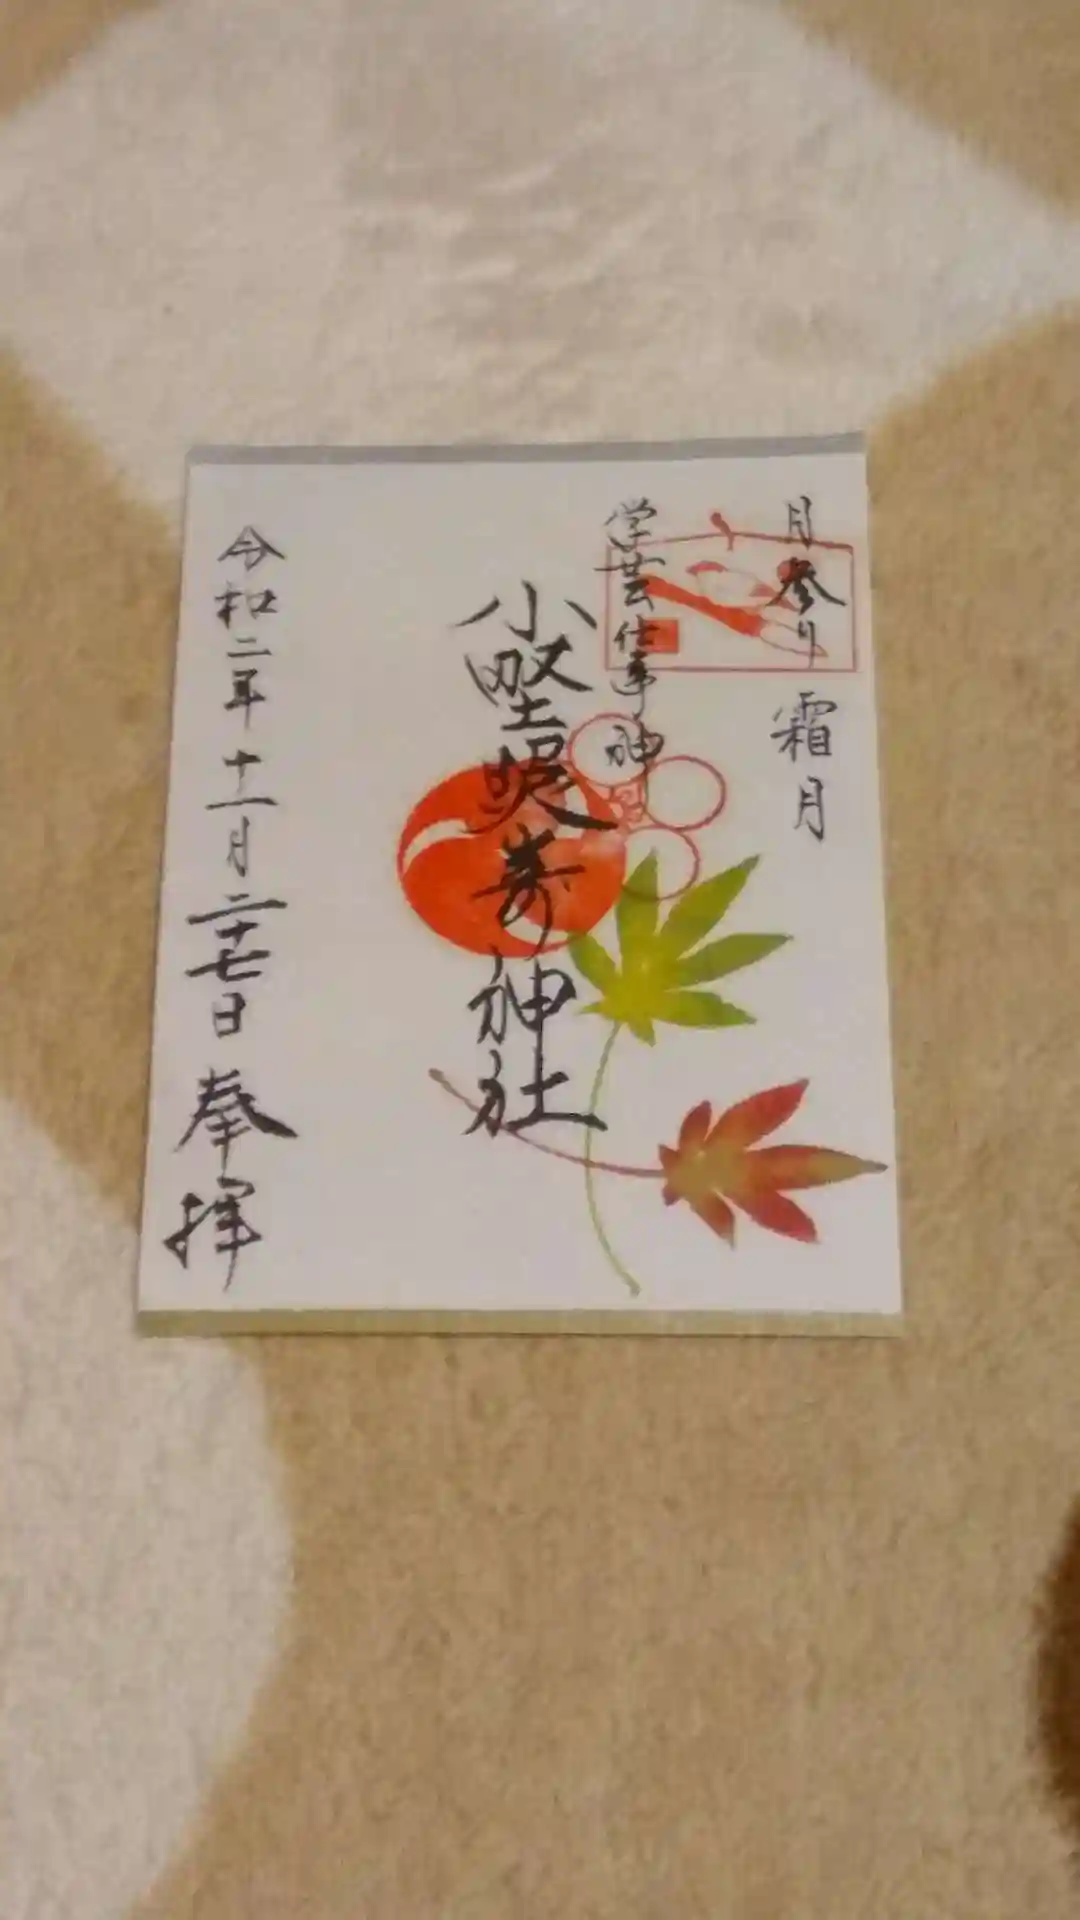 月参り 霜月
学芸仕事神
小野照崎神社
令和二年十一月二十七日 奉拝